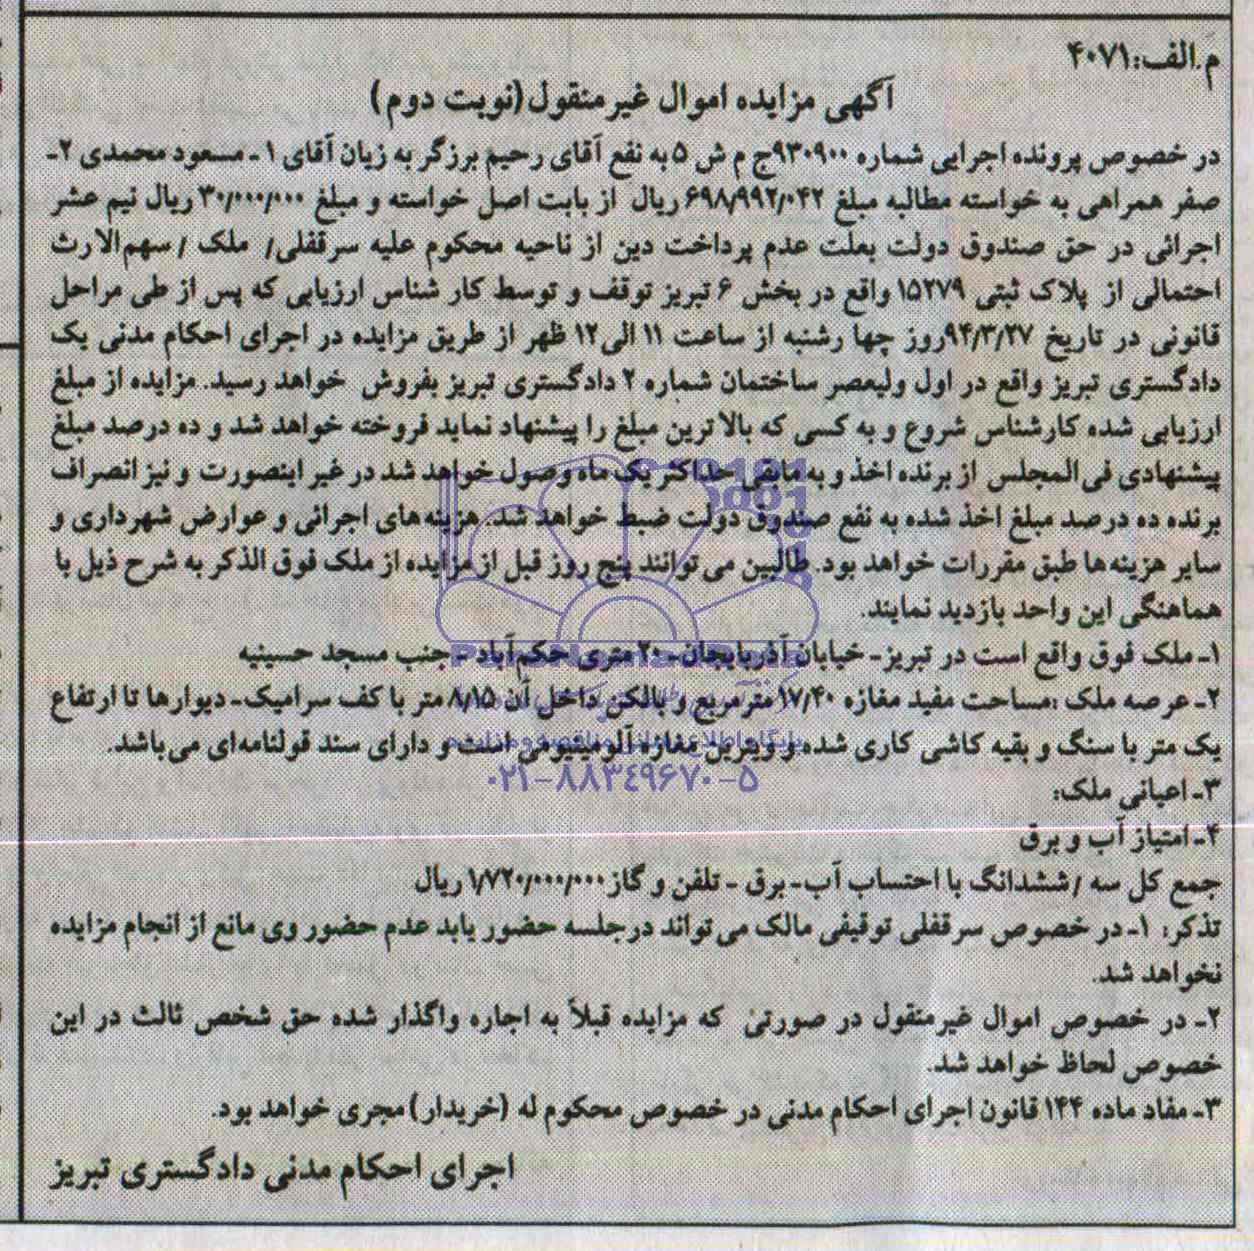 م.الف:۴۰۷۱
آگهی مزایده اموال غیرمنقول(نوبت دوم)
در خصوص پرونده اجرایی شماره ۹۳۰۹۰۰ج م ش ۵ به نفع آقای رحیم برزگر به زیان آقای ۱ـ مسعود محمدی ۲ـ
صفر همراهی به خواسته مطالبه مبلغ ۶۹۸/۹۹۲/۰۴۲ ریال از بابت اصل خواسته و مبلغ ۳۰/۰۰۰/۰۰۰ ریال نیم عشر
اجرائی در حق صندوق دولت بعلت عدم پرداخت دین از ناحیه محکوم علیه سرقفلی/ ملک /سهم‌الارث
احتمالی از پلاک ثبتی ۱۵۲۷۹ واقع در بخش ۶ تبریز توقف و توسط کار شناس ارزیابی که پس از طی مراحل
قانونی در تاریخ ۹۴/۳/۲۷روز چها رشنبه از ساعت ۱۱ الی۱۲ ظهر از طریق مزایده در اجرای احکام مدنی یک
دادگستری تبریز واقع در اول ولیعصر ساختمان شماره ۲ دادگستری تبریز بفروش خواهد رسید. مزایده از مبلغ
ارزیابی شده کارشناس شروع و به کسی که بالا ترین مبلغ را پیشنهاد نماید فروخته خواهد شد و ده درصد مبلغ
پیشنهادی فی‌المجلس از برنده اخذ و به مابقی حداکثر یک ماه وصول خواهد شد در غیر اینصورت و نیز انصراف
برنده ده درصد مبلغ اخذ شده به نفع صندوق دولت ضبط خواهد شد. هزینه‌های اجرائی و عوارض شهرداری و
سایر هزینه‌ها طبق مقررات خواهد بود. طالبین می‌توانند پنج روز قبل از مزایده از ملک فوق الذکر به شرح ذیل با
هماهنگی این واحد بازدید نمایند.
۱ـ ملک فوق واقع است در تبریزـ خیابان آذربایجان- ۲۰ متری حکم‌آباد - جنب مسجد حسینیه
۲ـ عرصه ملک :مساحت مفید مغازه ۱۷/۴۰ مترمربع و بالکن داخل آن ۸/۱۵ متر با کف سرامیک- دیوارها تا ارتفاع
یک متر با سنگ و بقیه کاشی کاری شده و ویترین مغازه آلومینیومی است و دارای سند قولنامه‌ای می‌باشد.
۰۲۱-۸۸۳۴۹۶۷۰-۵
۳ـ اعیانی ملک:
۴ـ امتیاز آب و برق
جمع کل سه /ششدانگ با احتساب آب- برق - تلفن و گاز ۱/۷۲۰/۰۰۰/۰۰۰ ریال
تذکر: ۱ـ در خصوص سرقفلی توقیفی مالک می‌تواند درجلسه حضور یابد عدم حضور وی مانع از انجام مزایده
نخواهد شد.
۲ـ در خصوص اموال غیرمنقول در صورتی که مزایده قبلاً به اجاره واگذار شده حق شخص ثالث در این
خصوص لحاظ خواهد شد.
۳ـ مفاد ماده ۱۴۴ قانون اجرای احکام مدنی در خصوص محکوم له (خریدار) مجری خواهد بود.
اجرای احکام مدنی دادگستری تبریز